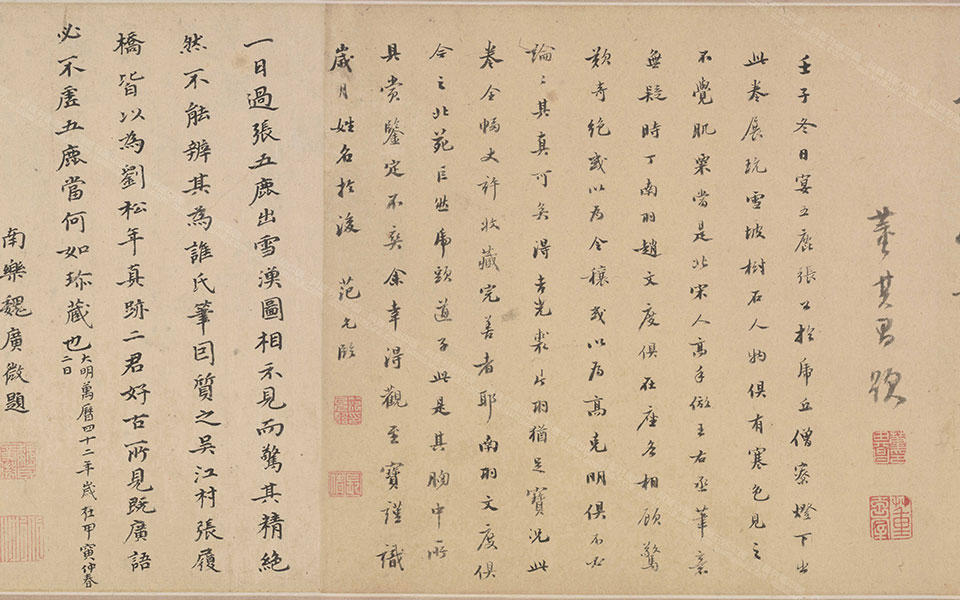 董其昌題
壬子冬日宴五鹿張公於虎丘僧寮燈下出
此卷展玩雪坡樹石人物俱有寒色見之
不覺肌粟當是北宋人高手倣王右丞筆意
無疑時丁南羽趙文度俱在座各相顧驚
歎奇絕或以為全穰或以為高克明俱不必
論論其真可矣得吉光裘片羽猶足寶況此
卷全幅丈許收藏完善者耶南羽文度俱
今之北苑巨然虎頭道子此是其胸中所
具賞鑒定不爽余幸得觀至寶謹識
歲月姓名於後 范允臨
一日過張五鹿出雪漁圖相示見而驚其精絕
然不能辨其為誰氏筆因質之吳江村張履
橋皆以為劉松年真跡二君好古所見既廣語
必不虛五鹿當何如珍藏也大明萬曆四十二年歲在甲寅仲春
二日
南樂魏廣微題